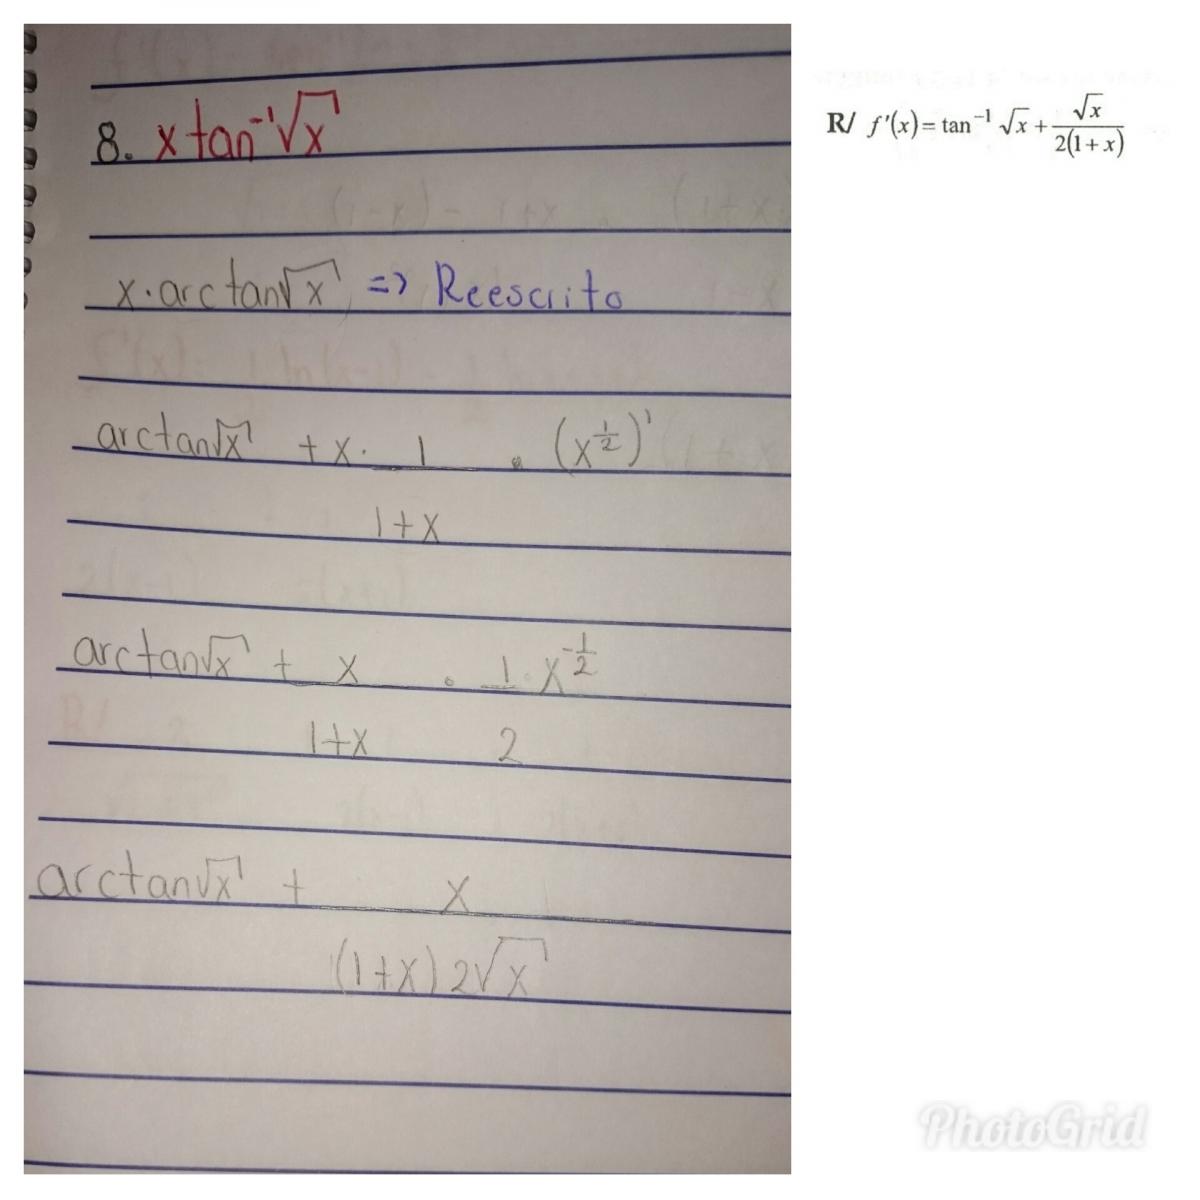 8. x tan⁻¹√x
x · arctan√x => Reescrito
arctan√x + x · 1/(1+x) · (x^(1/2))'
arctan√x + x/(1+x) · 1/2 · x^(-1/2)
arctan√x + x/((1+x)2√x)
R/ f'(x) = tan⁻¹ √x + √x/(2(1+x))
PhotoGrid